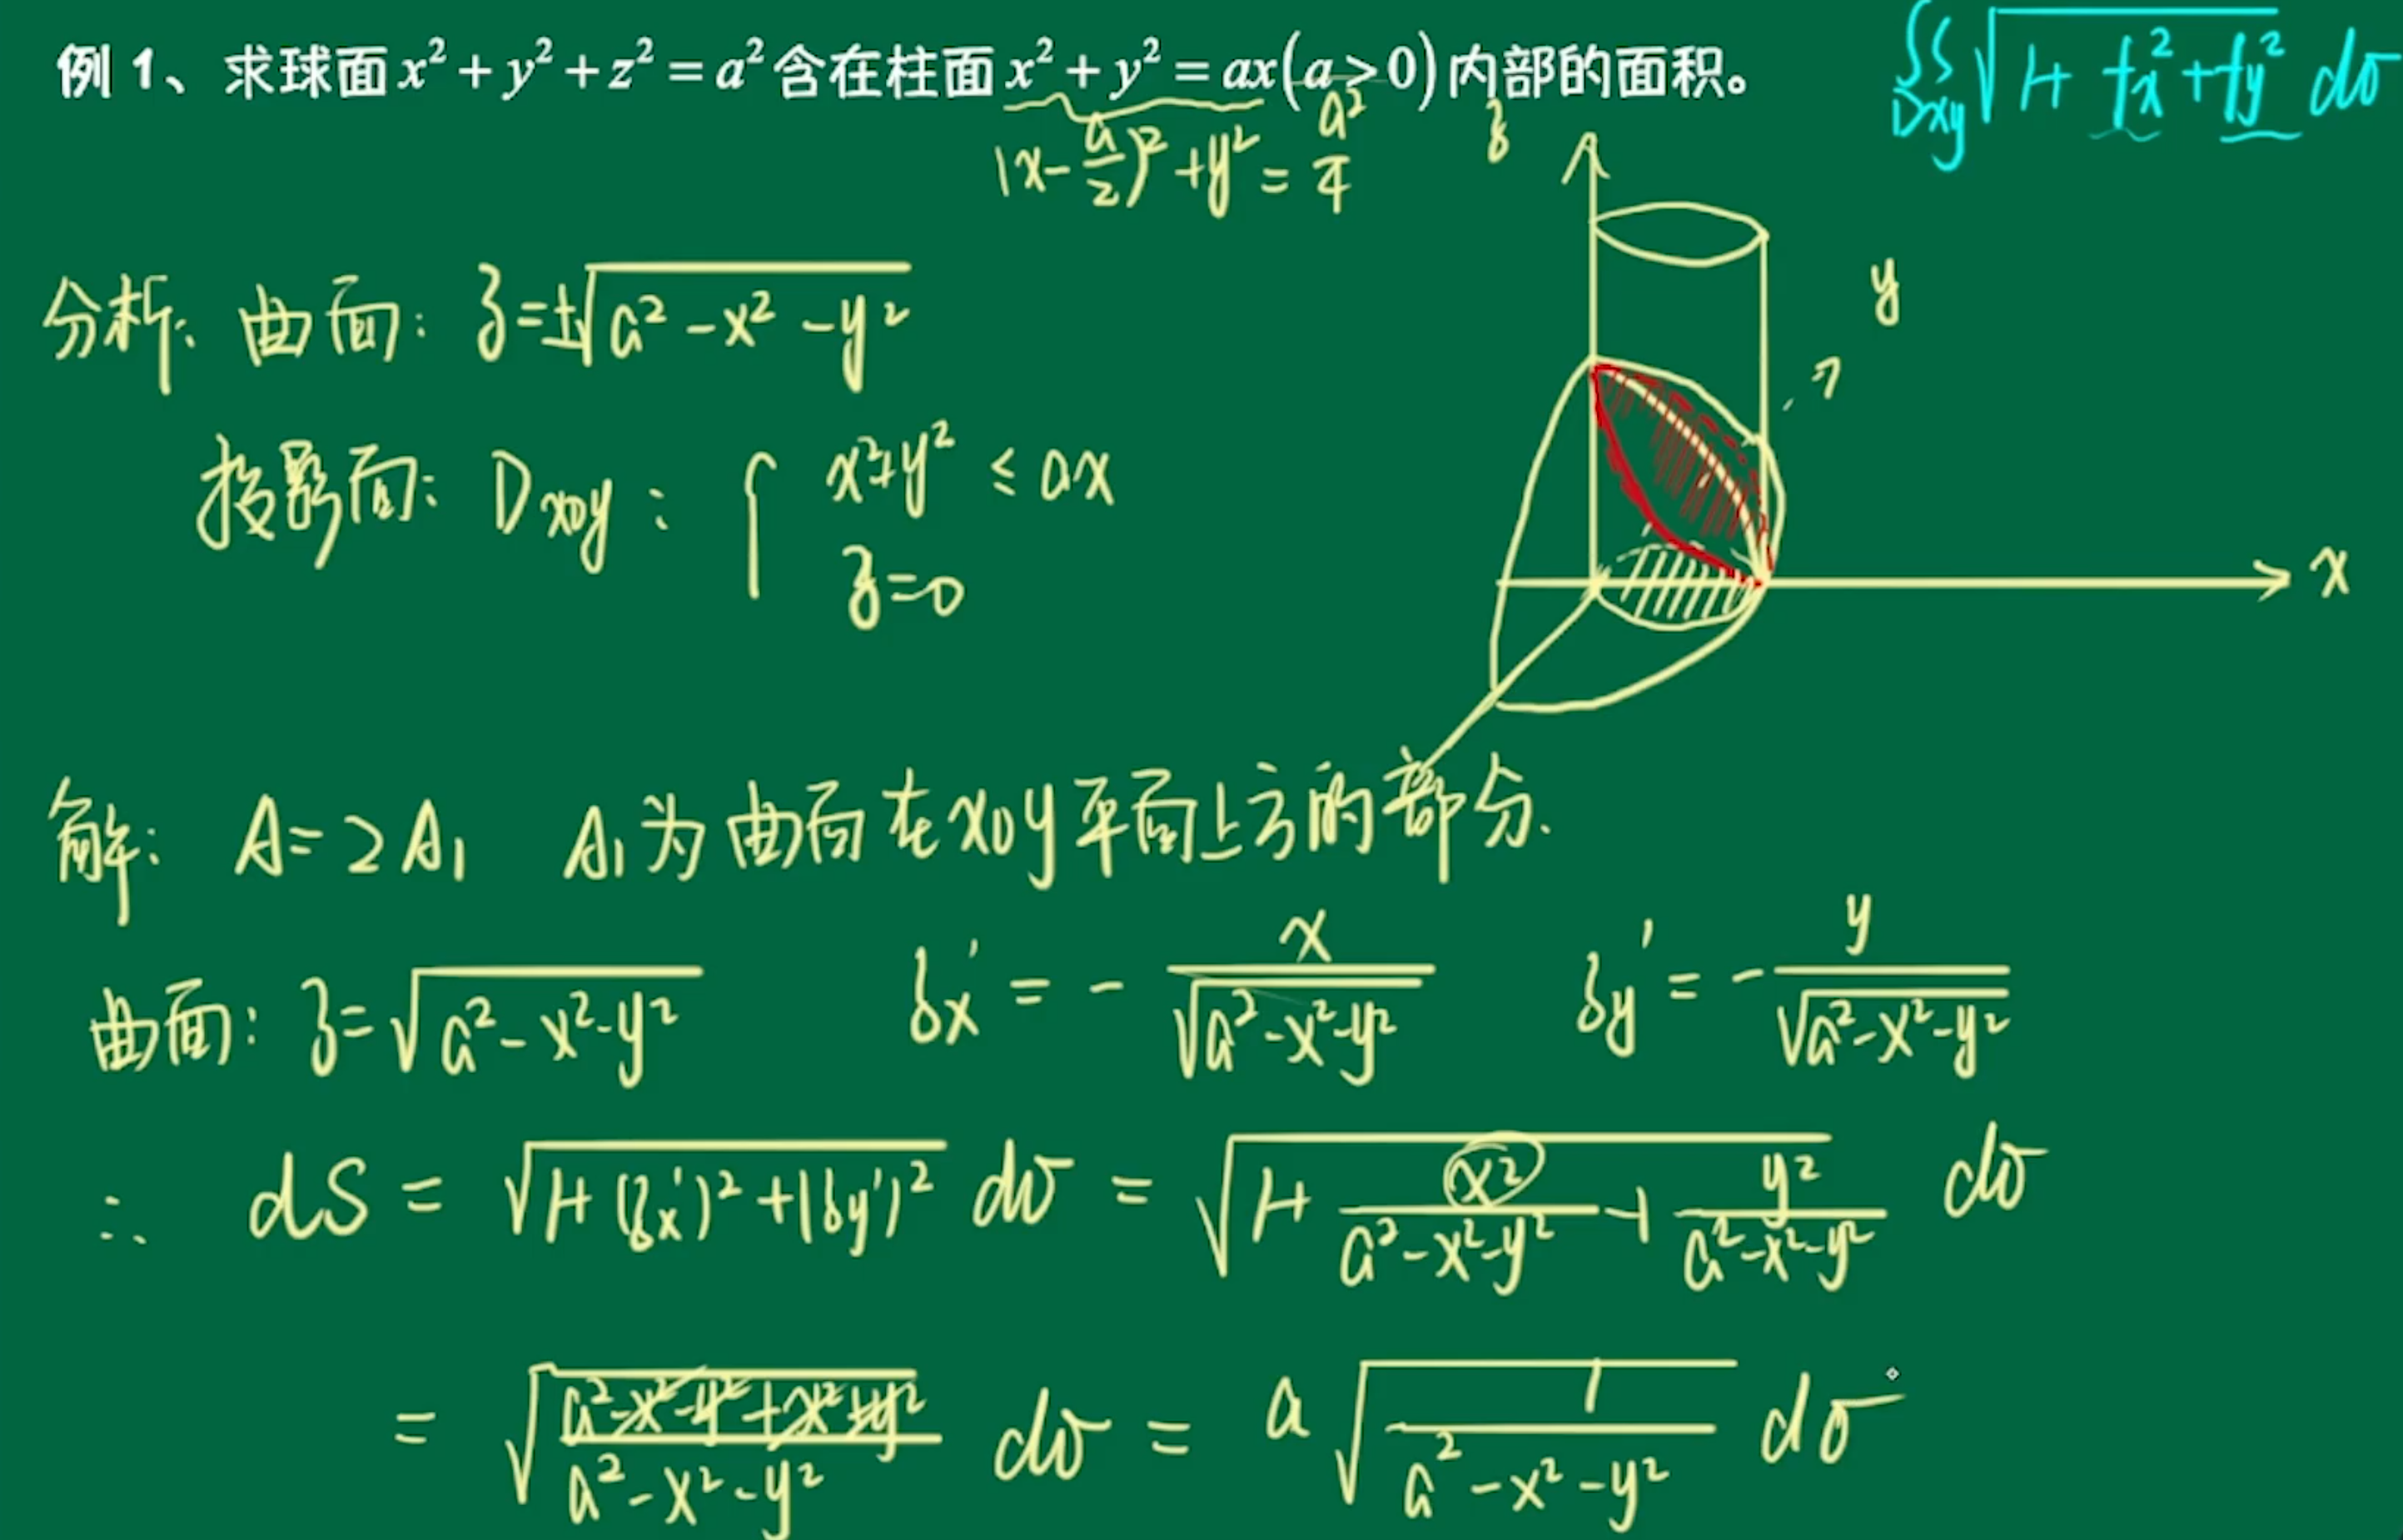 例 1、求球面 x² + y² + z² = a² 含在柱面 x² + y² = ax (a > 0) 内部的面积。
∬_{Dxy} √(1 + fx² + fy²) dσ
(x - a/2)² + y² = a²/4
分析: 曲面: z = ±√(a² - x² - y²)
投影面: D_{xoy} : { x² + y² ≤ ax
z = 0
z
y
x
解: A = 2A₁ A₁为曲面在xoy平面上方的部分.
曲面: z = √(a² - x² - y²) zx' = - x/√(a² - x² - y²) zy' = - y/√(a² - x² - y²)
∴ dS = √(1 + (zx')² + (zy')²) dσ = √(1 + x²/(a² - x² - y²) + y²/(a² - x² - y²)) dσ
= √((a² - x² - y² + x² + y²)/(a² - x² - y²)) dσ = a √(1/(a² - x² - y²)) dσ